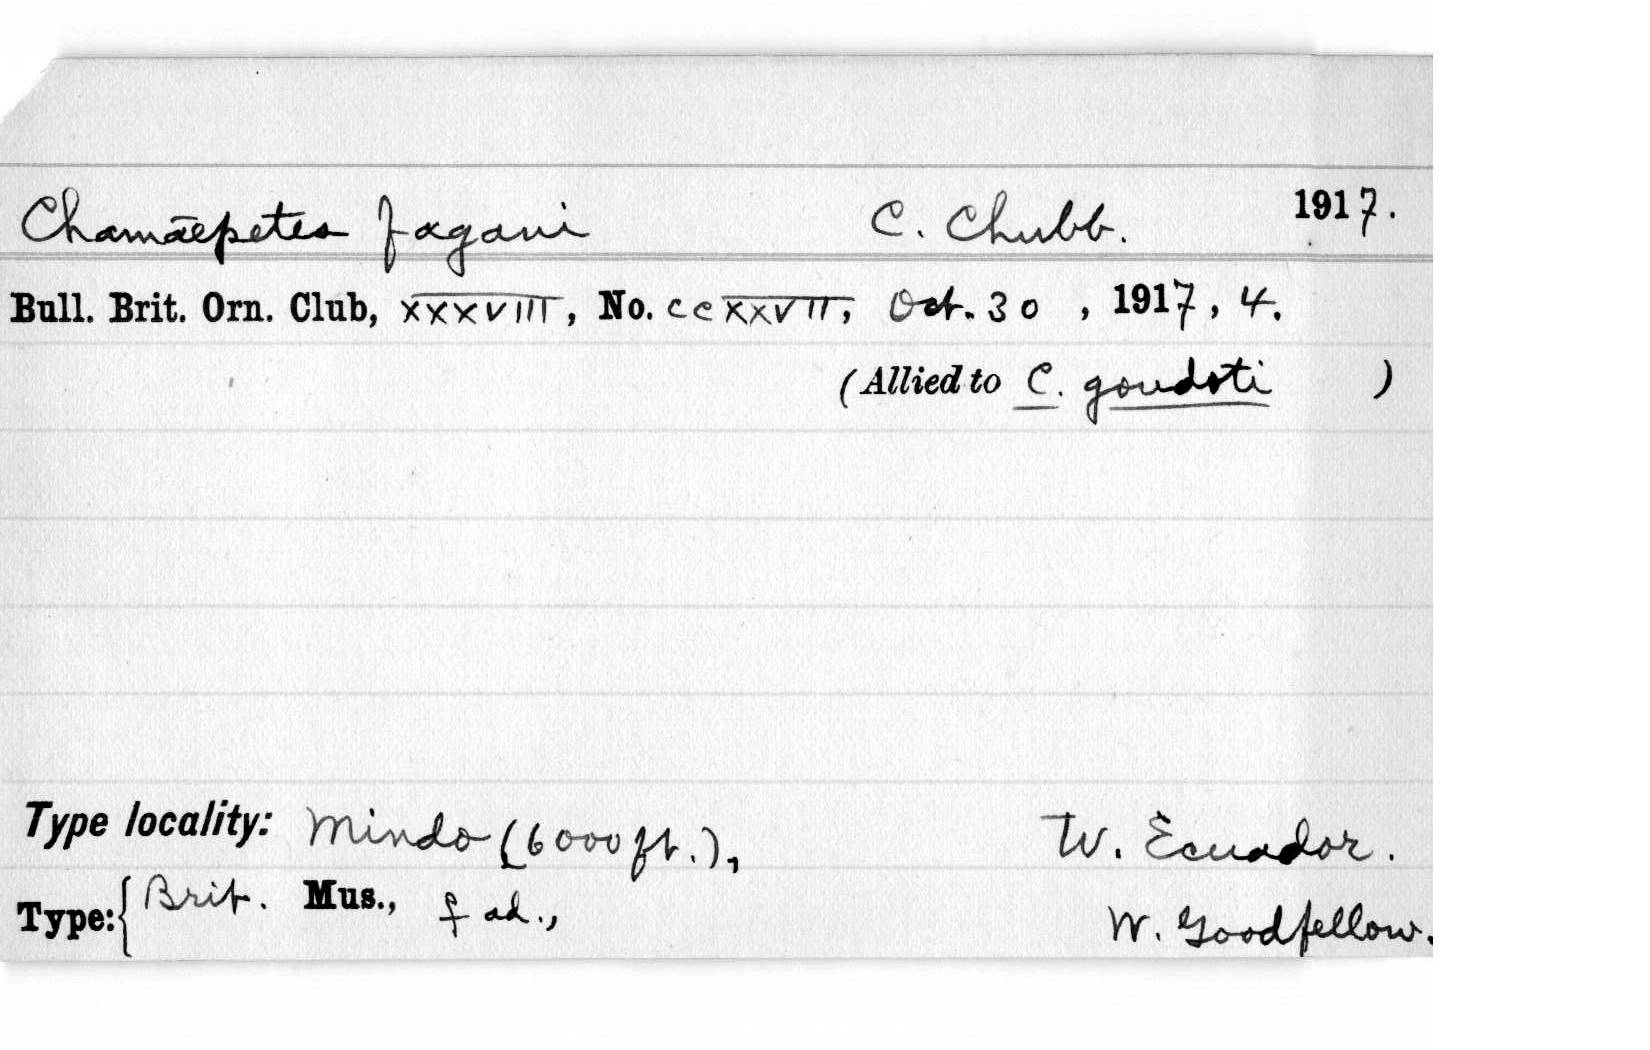 Chamaepetes fagani C. Chubb. 1917.
Bull. Brit. Orn. Club, XXXVIII, No. ccXXVII, Oct. 30 , 1917, 4.
(Allied to C. goudoti )
Type locality: Mindo (6000 ft.), W. Ecuador.
Type: { Brit. Mus., ♀ ad., W. Goodfellow.